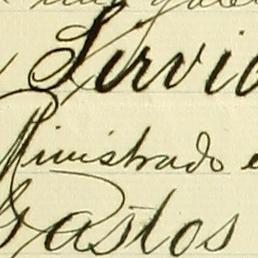 Servic
Ministrado e
Gastos